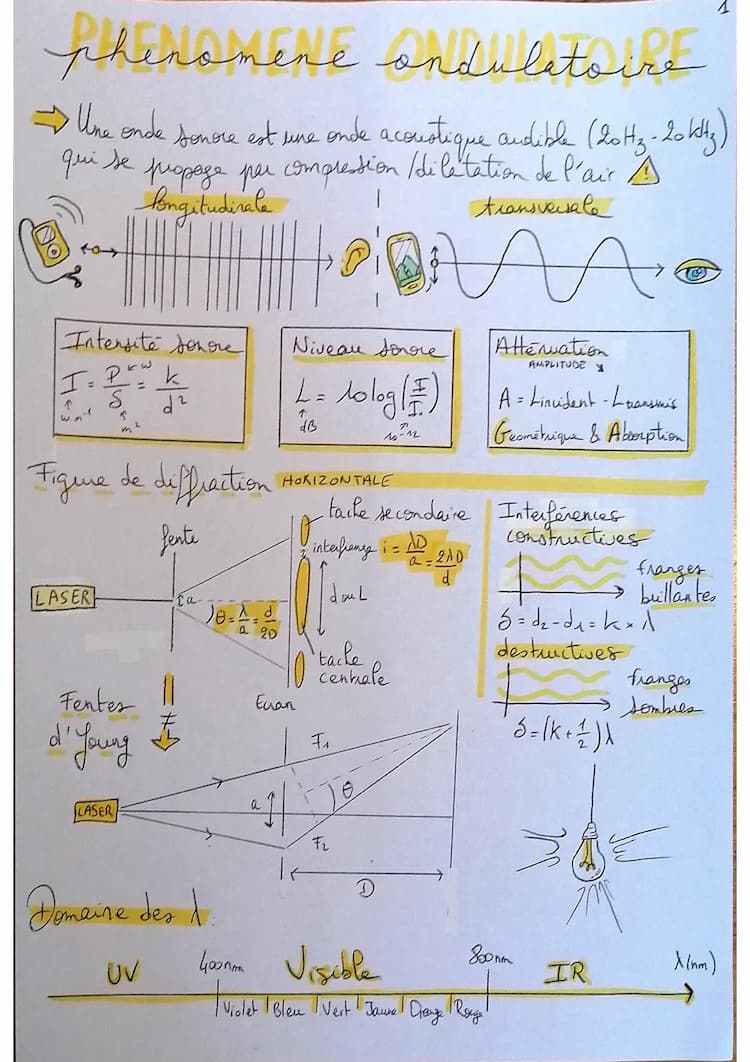 1
PHENOMENE ONDULATOIRE
phenomene ondulatoire
Une onde sonore est une onde acoustique audible (20Hz - 20 kHz)
qui se propage par compression /dilatation de l'air
longitudinale
transversale
Intensité sonore
I = P/S = k/d²
W
W.m⁻¹
m²
Niveau sonore
L = 10 log (I/I₀)
dB
10⁻¹²
Atténuation
AMPLITUDE ↘
A = Lincident - Ltransmis
Géométrique & Absorption
Figure de diffraction HORIZONTALE
fente
tache secondaire
i interfrange i = λD/a = 2λD/d
LASER
a
θ = λ/a = d/2D
d ou L
tache
centrale
Ecran
Interférences
constructives
franges
brillantes
δ = d₂ - d₁ = k × λ
destructives
franges
sombres
δ = (k + 1/2) λ
Fentes
d'Young
≠
LASER
F₁
a
θ
F₂
D
Domaine des λ :
UV
400nm
Visible
800nm
IR
λ(nm)
Violet | Bleu | Vert | Jaune | Orange | Rouge